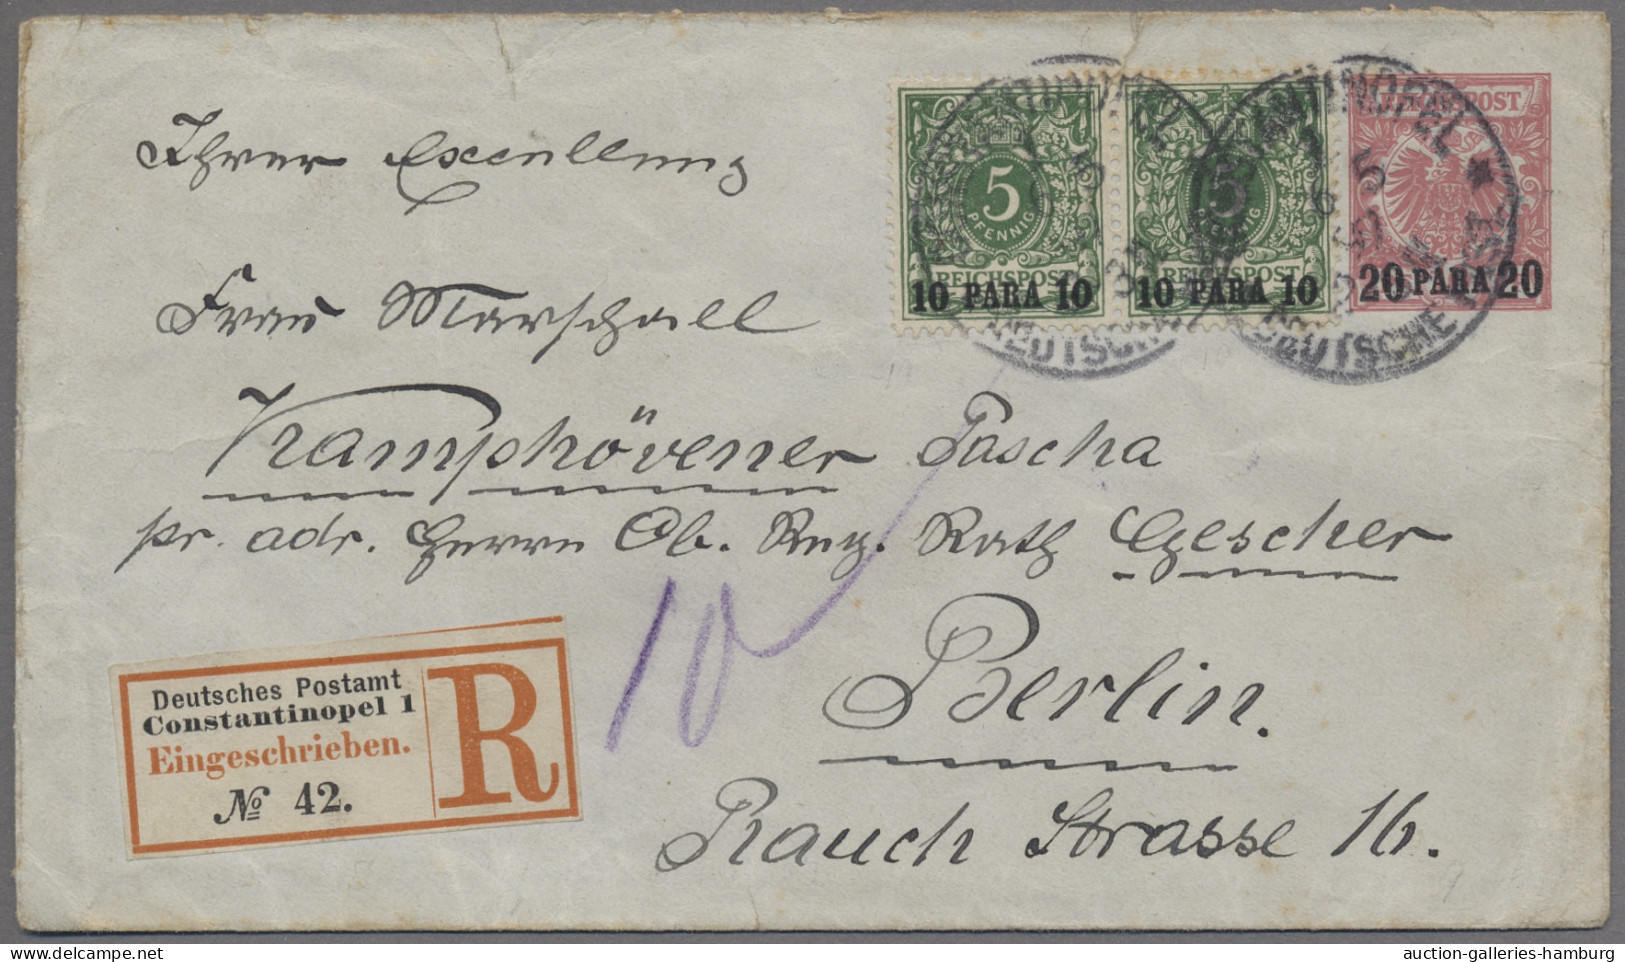 REICHSPOST
5
PFENNIG
REICHSPOST
10 PARA 10
5
PFENNIG
REICHSPOST
10 PARA 10
20 PARA 20
CONSTANTINOPEL
DEUTSCHE
DEUTSCHE
Ihrer Excellenz
Frau Marschall
Kamphövener Pascha
pr. adr. Herrn Ob. Reg. Rath Gescher
10
Berlin.
Rauch Strasse 16.
Deutsches Postamt
Constantinopel 1
Eingeschrieben.
№ 42.
R
auction-galleries-hamburg